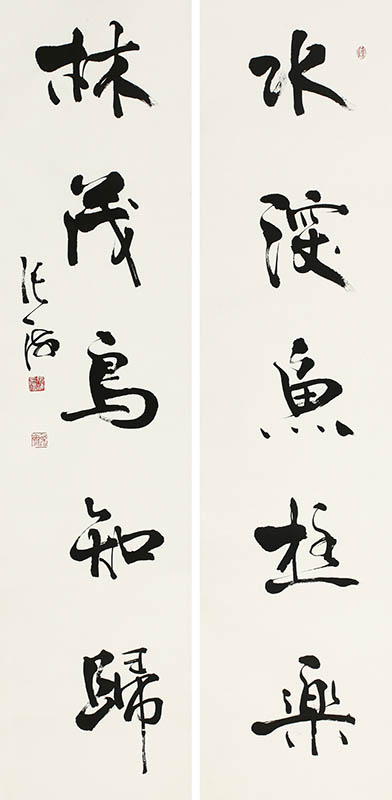 水深魚極樂
林茂鳥知歸
張海